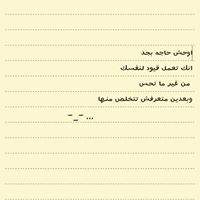 اوحش حاجه بجد
انك تعمل قيود لنفسك
من غير ما تحس
وبعدين متعرفش تتخلص منها
-_- ...